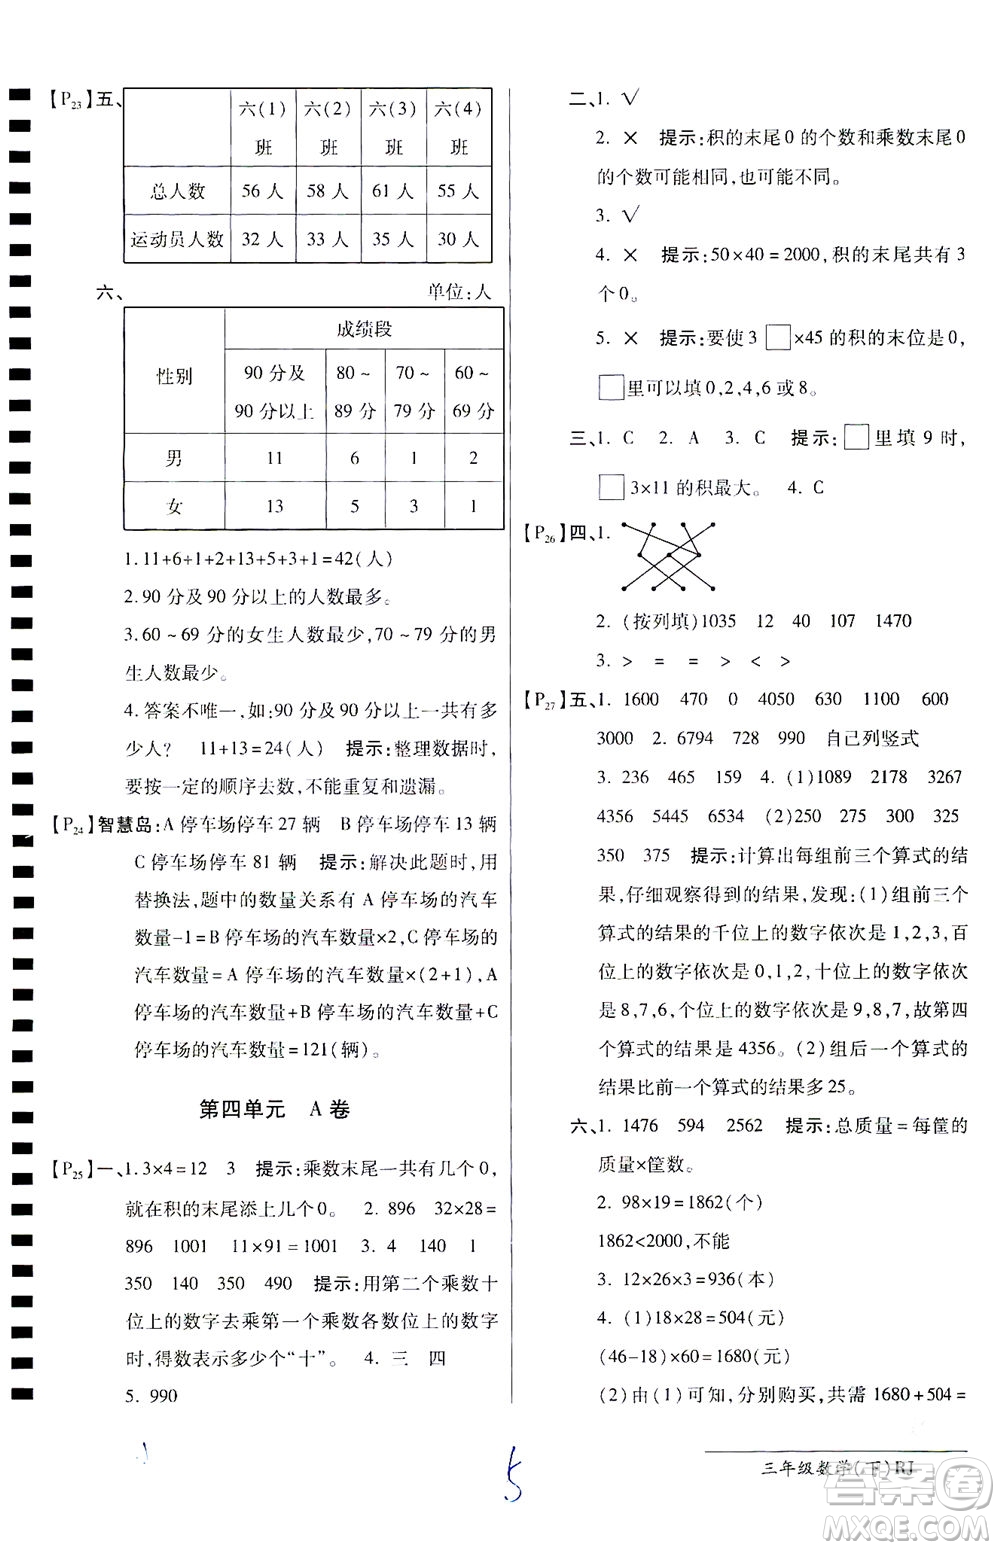 【P23】五、
六(1)班 六(2)班 六(3)班 六(4)班
总人数 56 人 58 人 61 人 55 人
运动员人数 32 人 33 人 35 人 30 人
六、 单位:人
性别 成绩段
90 分及90 分以上 80～89 分 70～79 分 60～69 分
男 11 6 1 2
女 13 5 3 1
1.11+6+1+2+13+5+3+1=42(人)
2.90 分及90 分以上的人数最多。
3.60～69 分的女生人数最少,70～79 分的男
生人数最少。
4.答案不唯一,如:90 分及 90 分以上一共有多
少人? 11+13=24(人) 提示:整理数据时,
要按一定的顺序去数,不能重复和遗漏。
【P24】智慧岛:A 停车场停车 27 辆 B 停车场停车 13 辆
C 停车场停车 81 辆 提示:解决此题时,用
替换法,题中的数量关系有:A 停车场的汽车
数量-1=B 停车场的汽车数量×2,C 停车场的
汽车数量=A 停车场的汽车数量×(2+1),A
停车场的汽车数量+B 停车场的汽车数量+C
停车场的汽车数量=121(辆)。
第四单元 A 卷
【P25】一、1.3×4=12 3 提示:乘数末尾一共有几个 0,
就在积的末尾添上几个 0。 2. 896 32×28=
896 1001 11×91=1001 3. 4 140 1
350 140 350 490 提示:用第二个乘数十
位上的数字去乘第一个乘数各数位上的数字
时,得数表示多少个“十”。 4. 三 四
5. 990
二、1. √
2. × 提示:积的末尾 0 的个数和乘数末尾0
的个数可能相同,也可能不同。
3. √
4. × 提示:50×40=2000,积的末尾共有 3
个 0。
5. × 提示:要使 3□×45 的积的末位是 0,
□里可以填 0,2,4,6 或 8。
三、1. C 2. A 3. C 提示:□里填 9 时,
□3×11 的积最大。 4. C
【P26】四、1.
2. (按列填)1035 12 40 107 1470
3. > = = > < >
【P27】五、1. 1600 470 0 4050 630 1100 600
3000 2. 6794 728 990 自己列竖式
3. 236 465 469 4. (1)1089 2178 3267
4356 5445 6534 (2)250 275 300 325
350 375 提示:计算出每组前三个算式的结
果,仔细观察得到的结果,发现:(1)组前三个
算式的结果的千位上的数字依次是 1,2,3,百
位上的数字依次是 0,1,2,十位上的数字依次
是 8,7,6,个位上的数字依次是 9,8,7,故第四
个算式的结果是 4356。(2)组后一个算式的
结果比前一个算式的结果多 25。
六、1. 1476 594 2562 提示:总质量=每筐的
质量×筐数。
2. 98×19=1862(个)
1862<2000,不能
3. 12×26×3=936(本)
4. (1)18×28=504(元)
(46-18)×60=1680(元)
(2)由(1)可知,分别购买,共需 1680+504=
5
三年级数学(下)RJ
答案圈
MXQE.COM